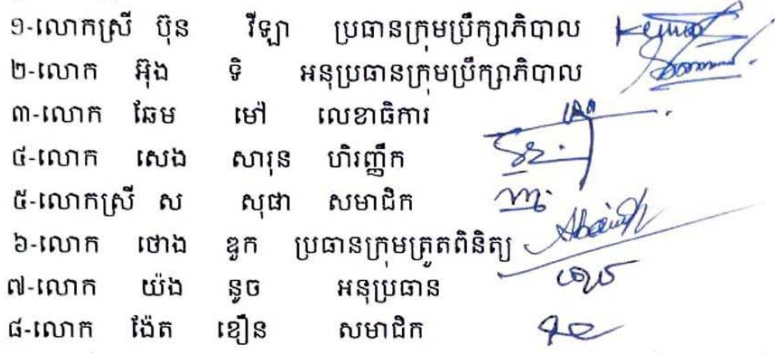 ១-លោកស្រី ប៊ុន វីឡា ប្រធានក្រុមប្រឹក្សាភិបាល
២-លោក អ៊ុង ទិ អនុប្រធានក្រុមប្រឹក្សាភិបាល
៣-លោក ឆែម មៅ លេខាធិការ
៤-លោក សេង សារុន ហិរញ្ញឹក
៥-លោកស្រី ស សុផា សមាជិក
៦-លោក ថោង ឌួក ប្រធានក្រុមត្រួតពិនិត្យ
៧-លោក យ៉ង នូច អនុប្រធាន
៨-លោក ង៉ែត ខឿន សមាជិក